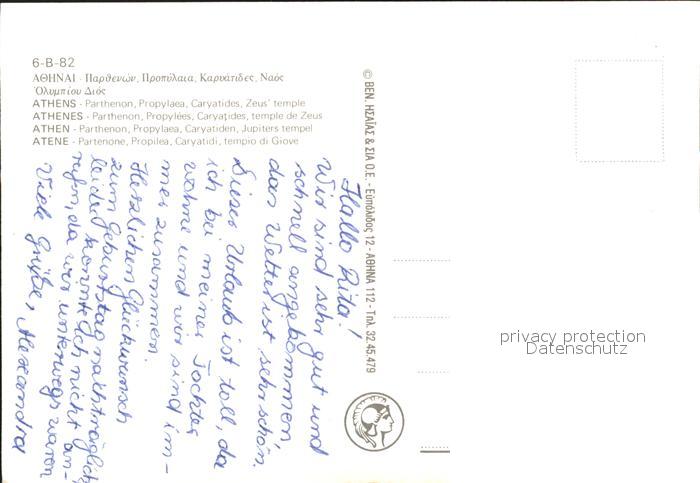 6-B-82
ΑΘΗΝΑΙ - Παρθενών, Προπύλαια, Καρυάτιδες, Ναός
Ὀλυμπίου Διός
ATHENS - Parthenon, Propylaea, Caryatides, Zeus' temple
ATHENES - Parthenon, Propylées, Caryatides, temple de Zeus
ATHEN - Parthenon, Propylaea, Caryatiden, Jupiters tempel
ATENE - Partenone, Propilea, Caryatidi, tempio di Giove
© ΒΕΝ. ΗΣΑΪΑΣ & ΣΙΑ Ο.Ε. - Εὐπόλιδος 12 - ΑΘΗΝΑ 112 - Τηλ. 32.45.479
Hallo Rita!
Wir sind sehr gut und
schnell angekommen,
das Wetter ist sehr schön.
Dieser Urlaub ist toll, da
ich bei meiner Tochter
wohne und wir sind im-
mer zusammen.
Herzlichen Glückwunsch
zum Geburtstag nachträglich
leider konnte ich nicht an-
rufen, da wir unterwegs waren
Viele Grüße, Alexandra
privacy protection
Datenschutz